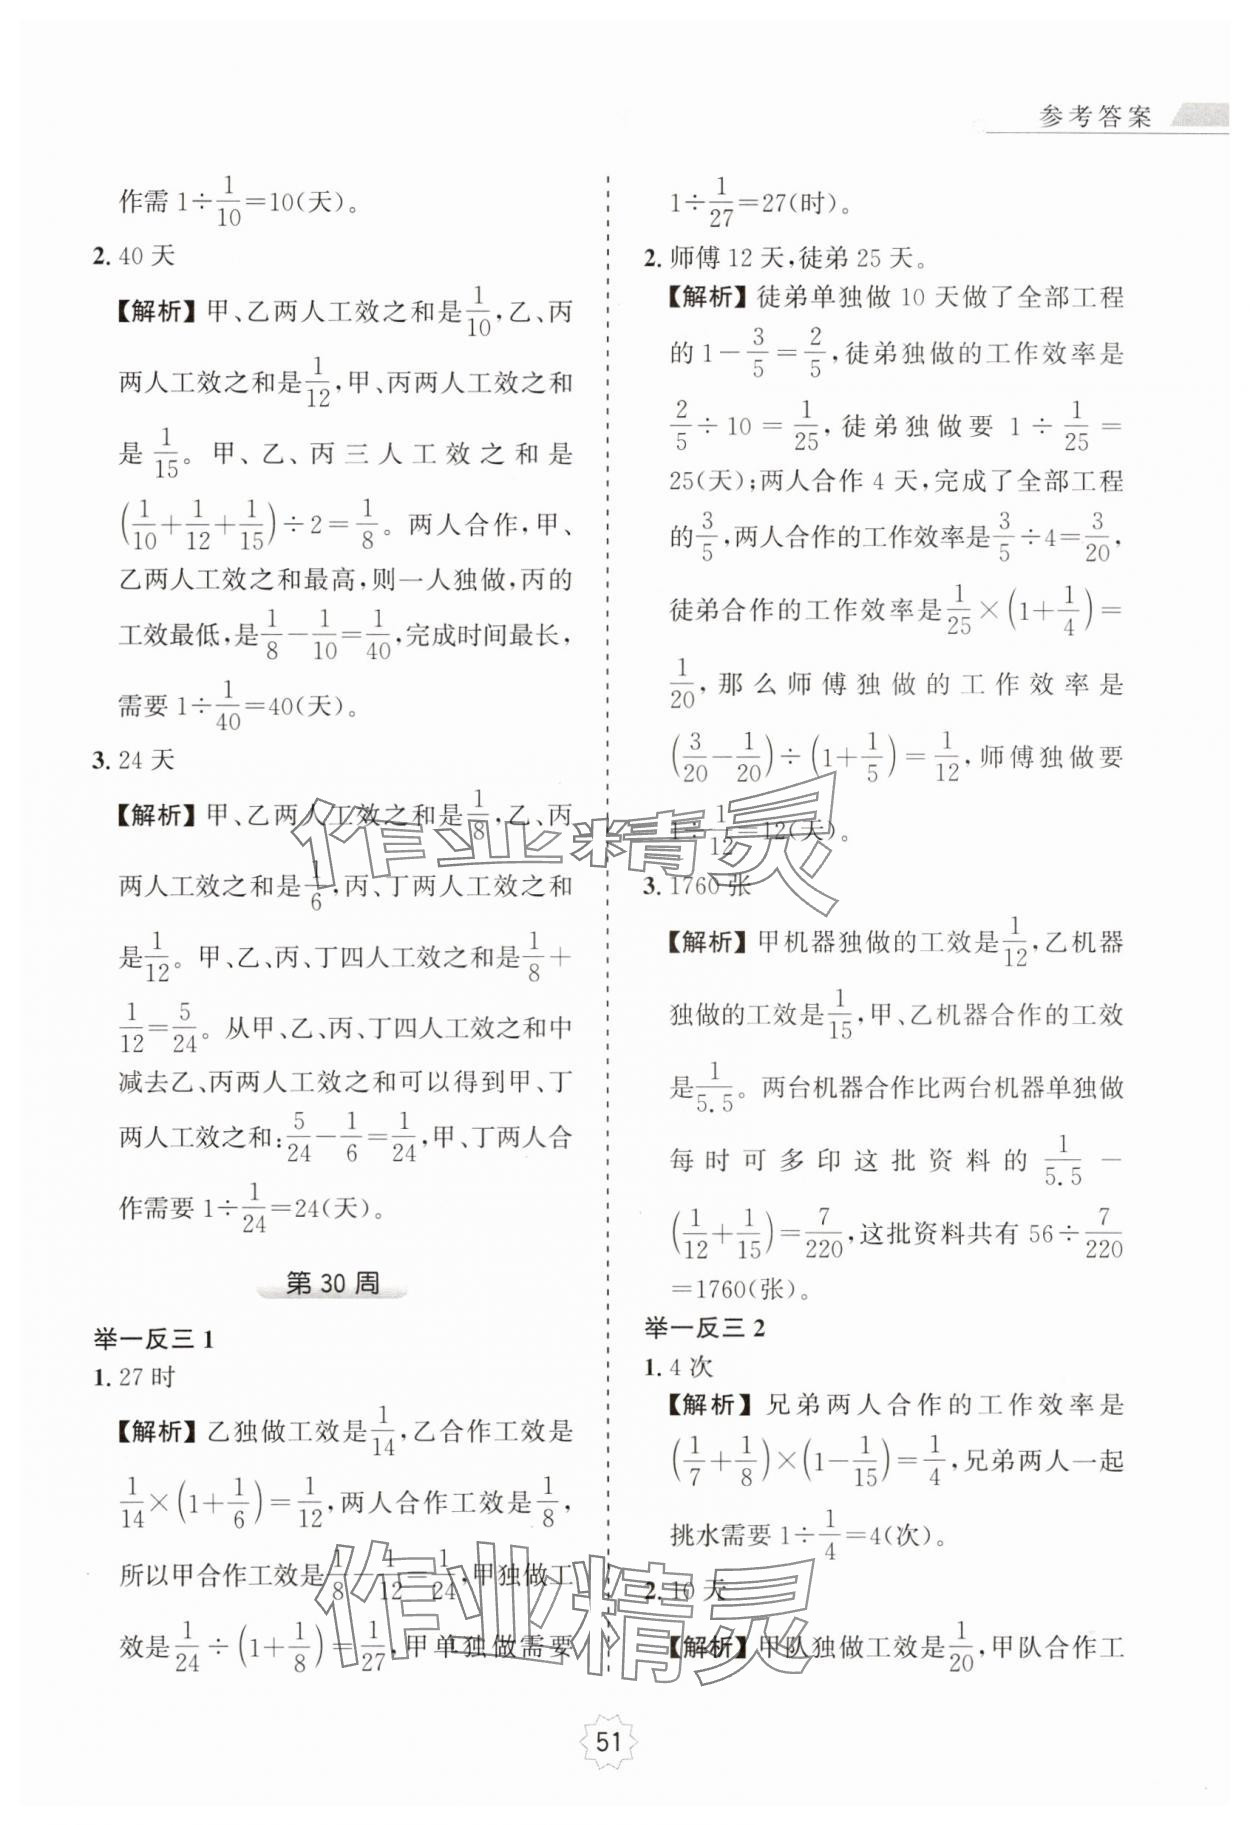 参考答案
作需 1÷1/10=10(天)。
2. 40 天
【解析】甲、乙两人工效之和是1/10,乙、丙
两人工效之和是1/12,甲、丙两人工效之和
是1/15。甲、乙、丙三人工效之和是
(1/10+1/12+1/15)÷2=1/8。两人合作,甲、
乙两人工效之和最高,则一人独做,丙的
工效最低,是1/8-1/10=1/40,完成时间最长,
需要 1÷1/40=40(天)。
3. 24 天
【解析】甲、乙两人工效之和是1/8,乙、丙
两人工效之和是1/6,丙、丁两人工效之和
是1/12。甲、乙、丙、丁四人工效之和是1/8+
1/12=5/24。从甲、乙、丙、丁四人工效之和中
减去乙、丙两人工效之和可以得到甲、丁
两人工效之和:5/24-1/6=1/24,甲、丁两人合
作需要 1÷1/24=24(天)。
第 30 周
举一反三 1
1. 27 时
【解析】乙独做工效是1/14,乙合作工效是
1/14×(1+1/6)=1/12,两人合作工效是1/8,
所以甲合作工效是1/8-1/12=1/24,甲独做工
效是1/24÷(1+1/8)=1/27,甲单独做需要
1÷1/27=27(时)。
2. 师傅 12 天,徒弟 25 天。
【解析】徒弟单独做 10 天做了全部工程
的 1-3/5=2/5,徒弟独做的工作效率是
2/5÷10=1/25,徒弟独做要 1÷1/25=
25(天);两人合作 4 天,完成了全部工程
的3/5,两人合作的工作效率是3/5÷4=3/20,
徒弟合作的工作效率是1/25×(1+1/4)=
1/20,那么师傅独做的工作效率是
(3/20-1/20)÷(1+1/5)=1/12,师傅独做要
1÷1/12=12(天)。
3. 1760 张
【解析】甲机器独做的工效是1/12,乙机器
独做的工效是1/15,甲、乙机器合作的工效
是1/5.5。两台机器合作比两台机器单独做
每时可多印这批资料的1/5.5-
(1/12+1/15)=7/220,这批资料共有 56÷7/220
=1760(张)。
举一反三 2
1. 4 次
【解析】兄弟两人合作的工作效率是
(1/7+1/8)×(1-1/15)=1/4,兄弟两人一起
挑水需要 1÷1/4=4(次)。
2. 10 天
【解析】甲队独做工效是1/20,甲队合作工
51
作业精灵
作业精灵